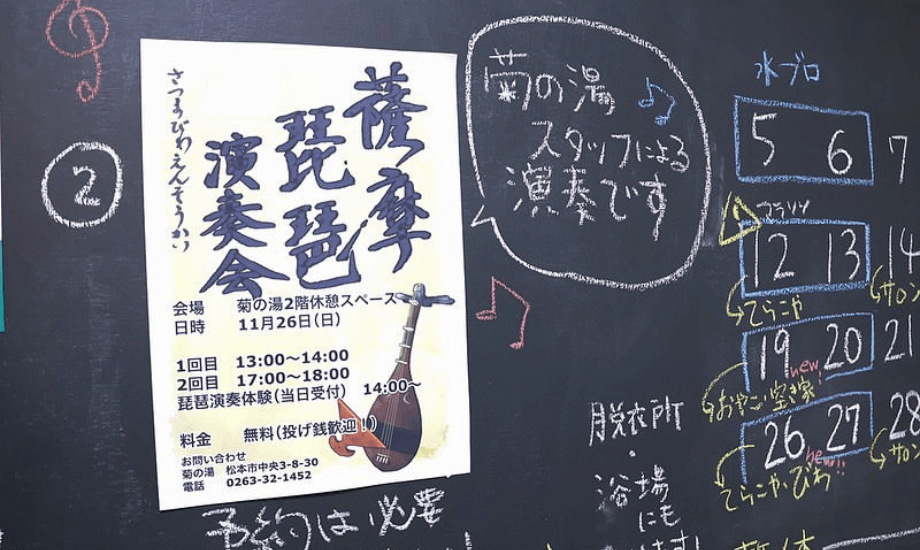 ②
さつまびわえんそうかい
薩摩
琵琶
演奏会
会場 菊の湯2階休憩スペース
日時 11月26日(日)
1回目 13:00〜14:00
2回目 17:00〜18:00
琵琶演奏体験(当日受付) 14:00〜
料金 無料(投げ銭歓迎!)
お問い合わせ
菊の湯 松本市中央3-8-30
電話 0263-32-1452
予約は必要
菊の湯
スタッフによる
演奏です
脱衣所
浴場
にも
水ブロ
5 6 7
12 13 14
てらこや サロン
19 20 21
new!
おやこ空き家
26 27 28
new!!
てらこや・びわ サロン